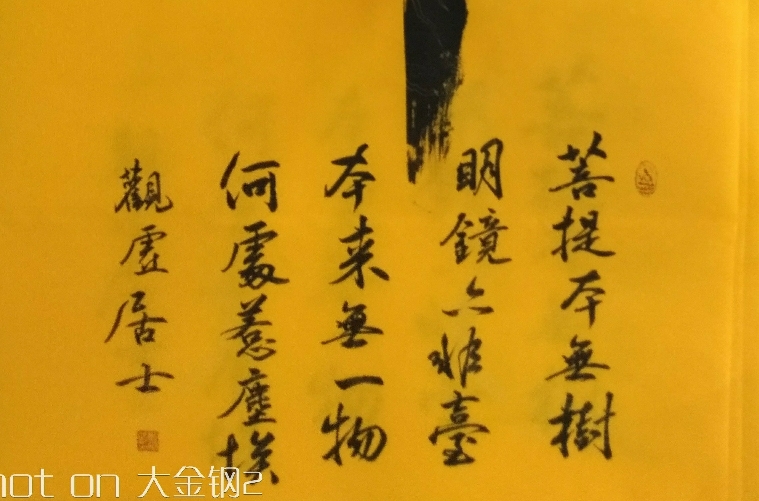 菩提本無樹
明鏡亦非臺
本來無一物
何處惹塵埃
觀虛居士
hot on 大金钢2